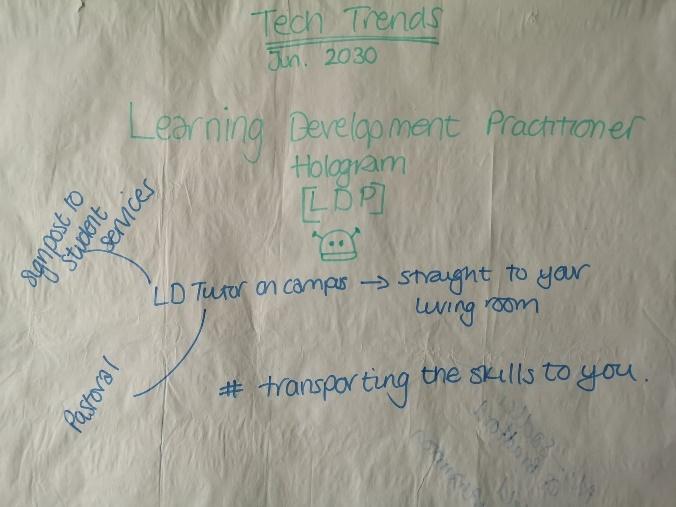 Tech Trends
Jun. 2030
Learning Development Practitioner
Hologram
[LDP]
signpost to
student
services
LD Tutor on campus → straight to your
living room
Pastoral
# transporting the skills to you.